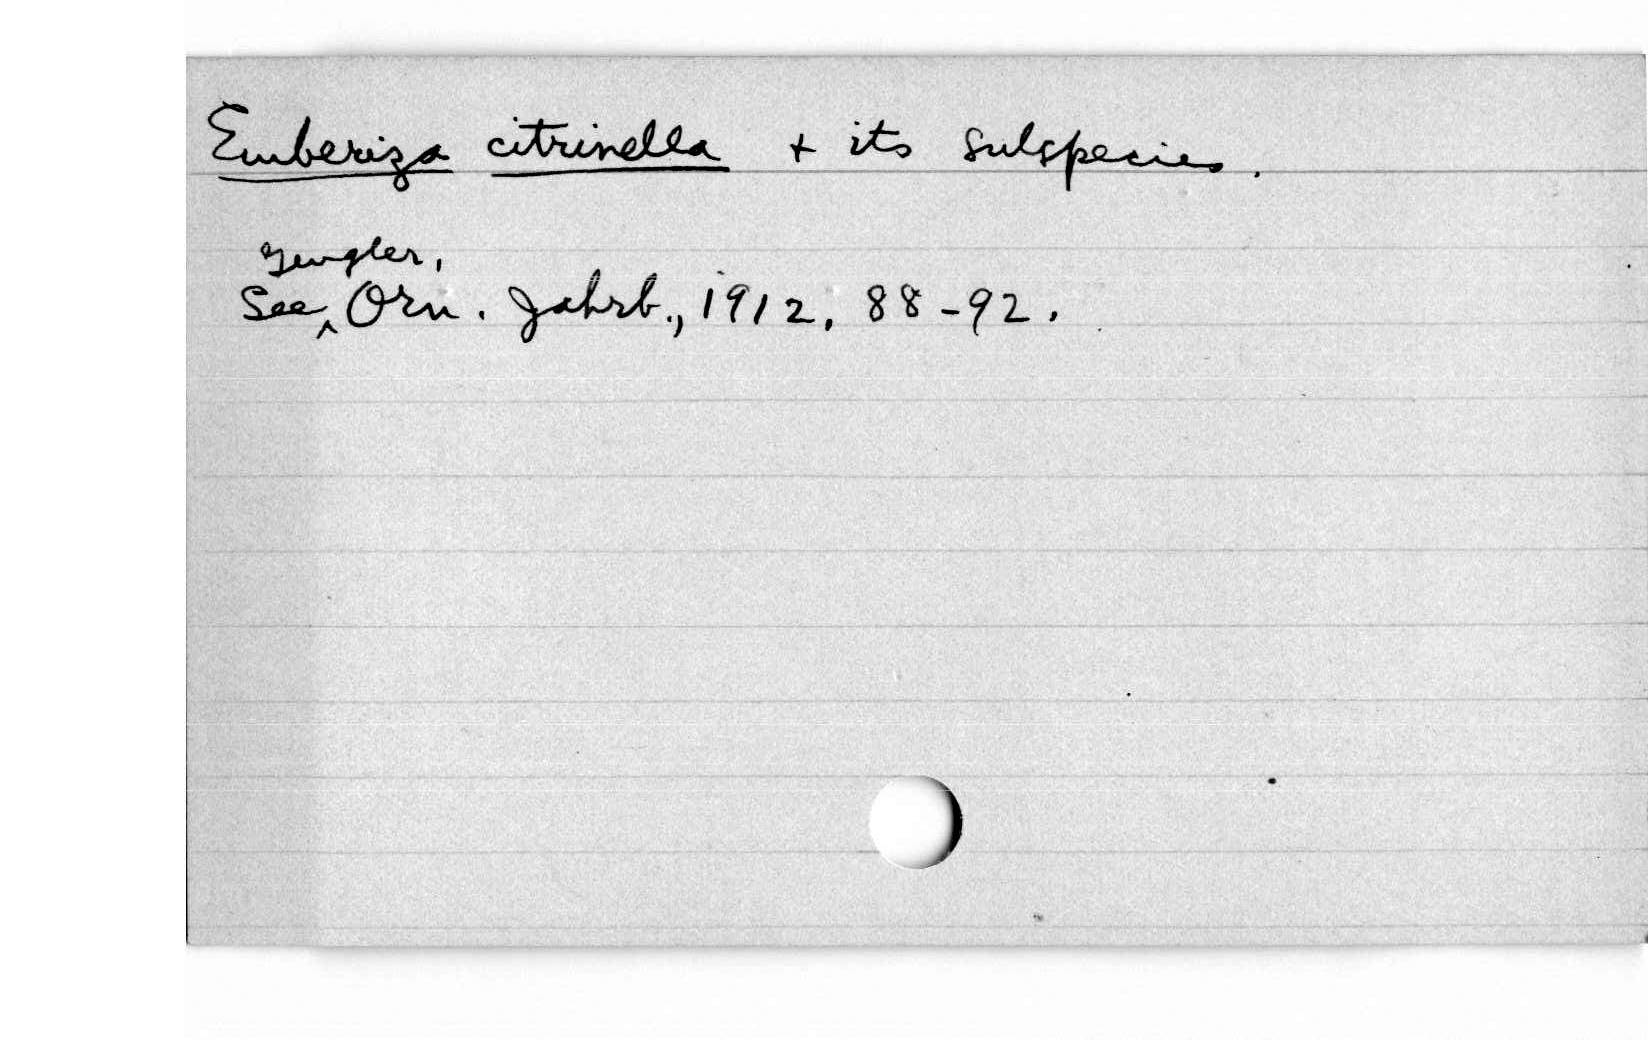 Emberiza citrinella + its subspecies.
Gengler,
See ^ Orn. Jahrb., 1912, 88-92.